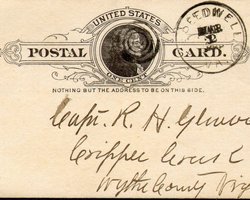 UNITED STATES
POSTAL CARD.
ONE CENT
NOTHING BUT THE ADDRESS TO BE ON THIS SIDE.
SPEEDWELL
VA.
Capt. R. H.
Cripple
Wythe County